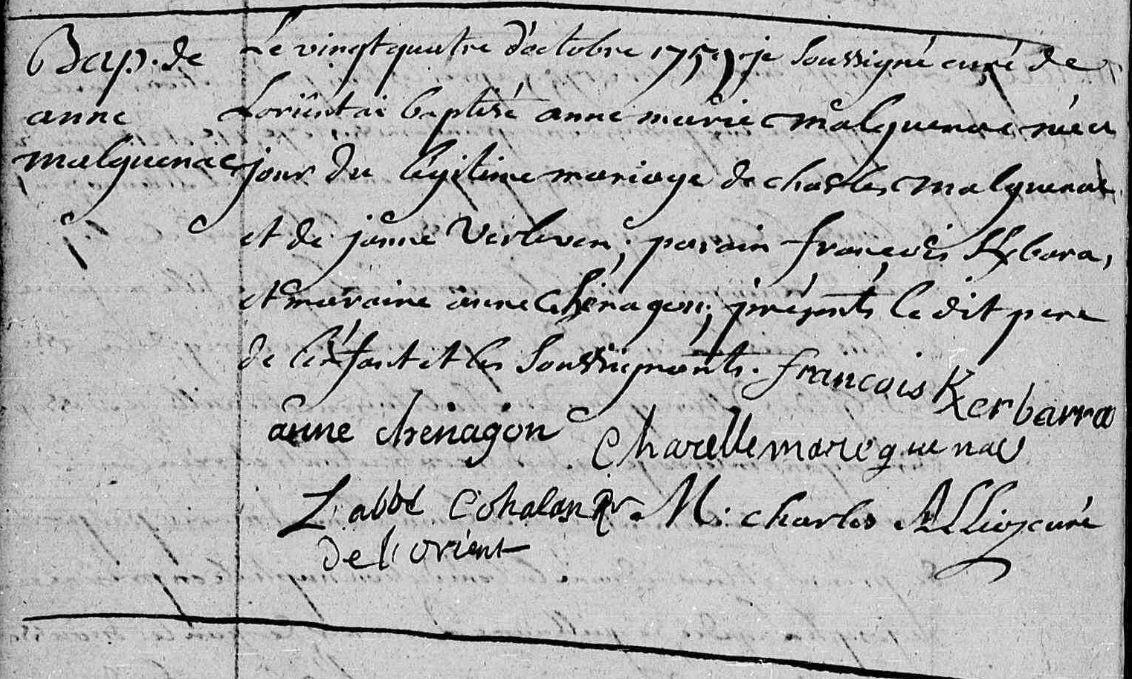 Bap. de
anne
malquenac
Le vingt quatre d'octobre 1757 je soussigné curé de
Lorient ai baptisé anne marie malquenac née ce
jour du légitime mariage de charles malquenac
et de janne Verleven; parain françois Kbara,
et maraine anne chénagon; présents le dit pere
de l'enfant et les soussignants. francois Kerbarra
anne chenagon charelle marequenac
L'abbé Cohalan M: charles Allioz curé
de l'orient